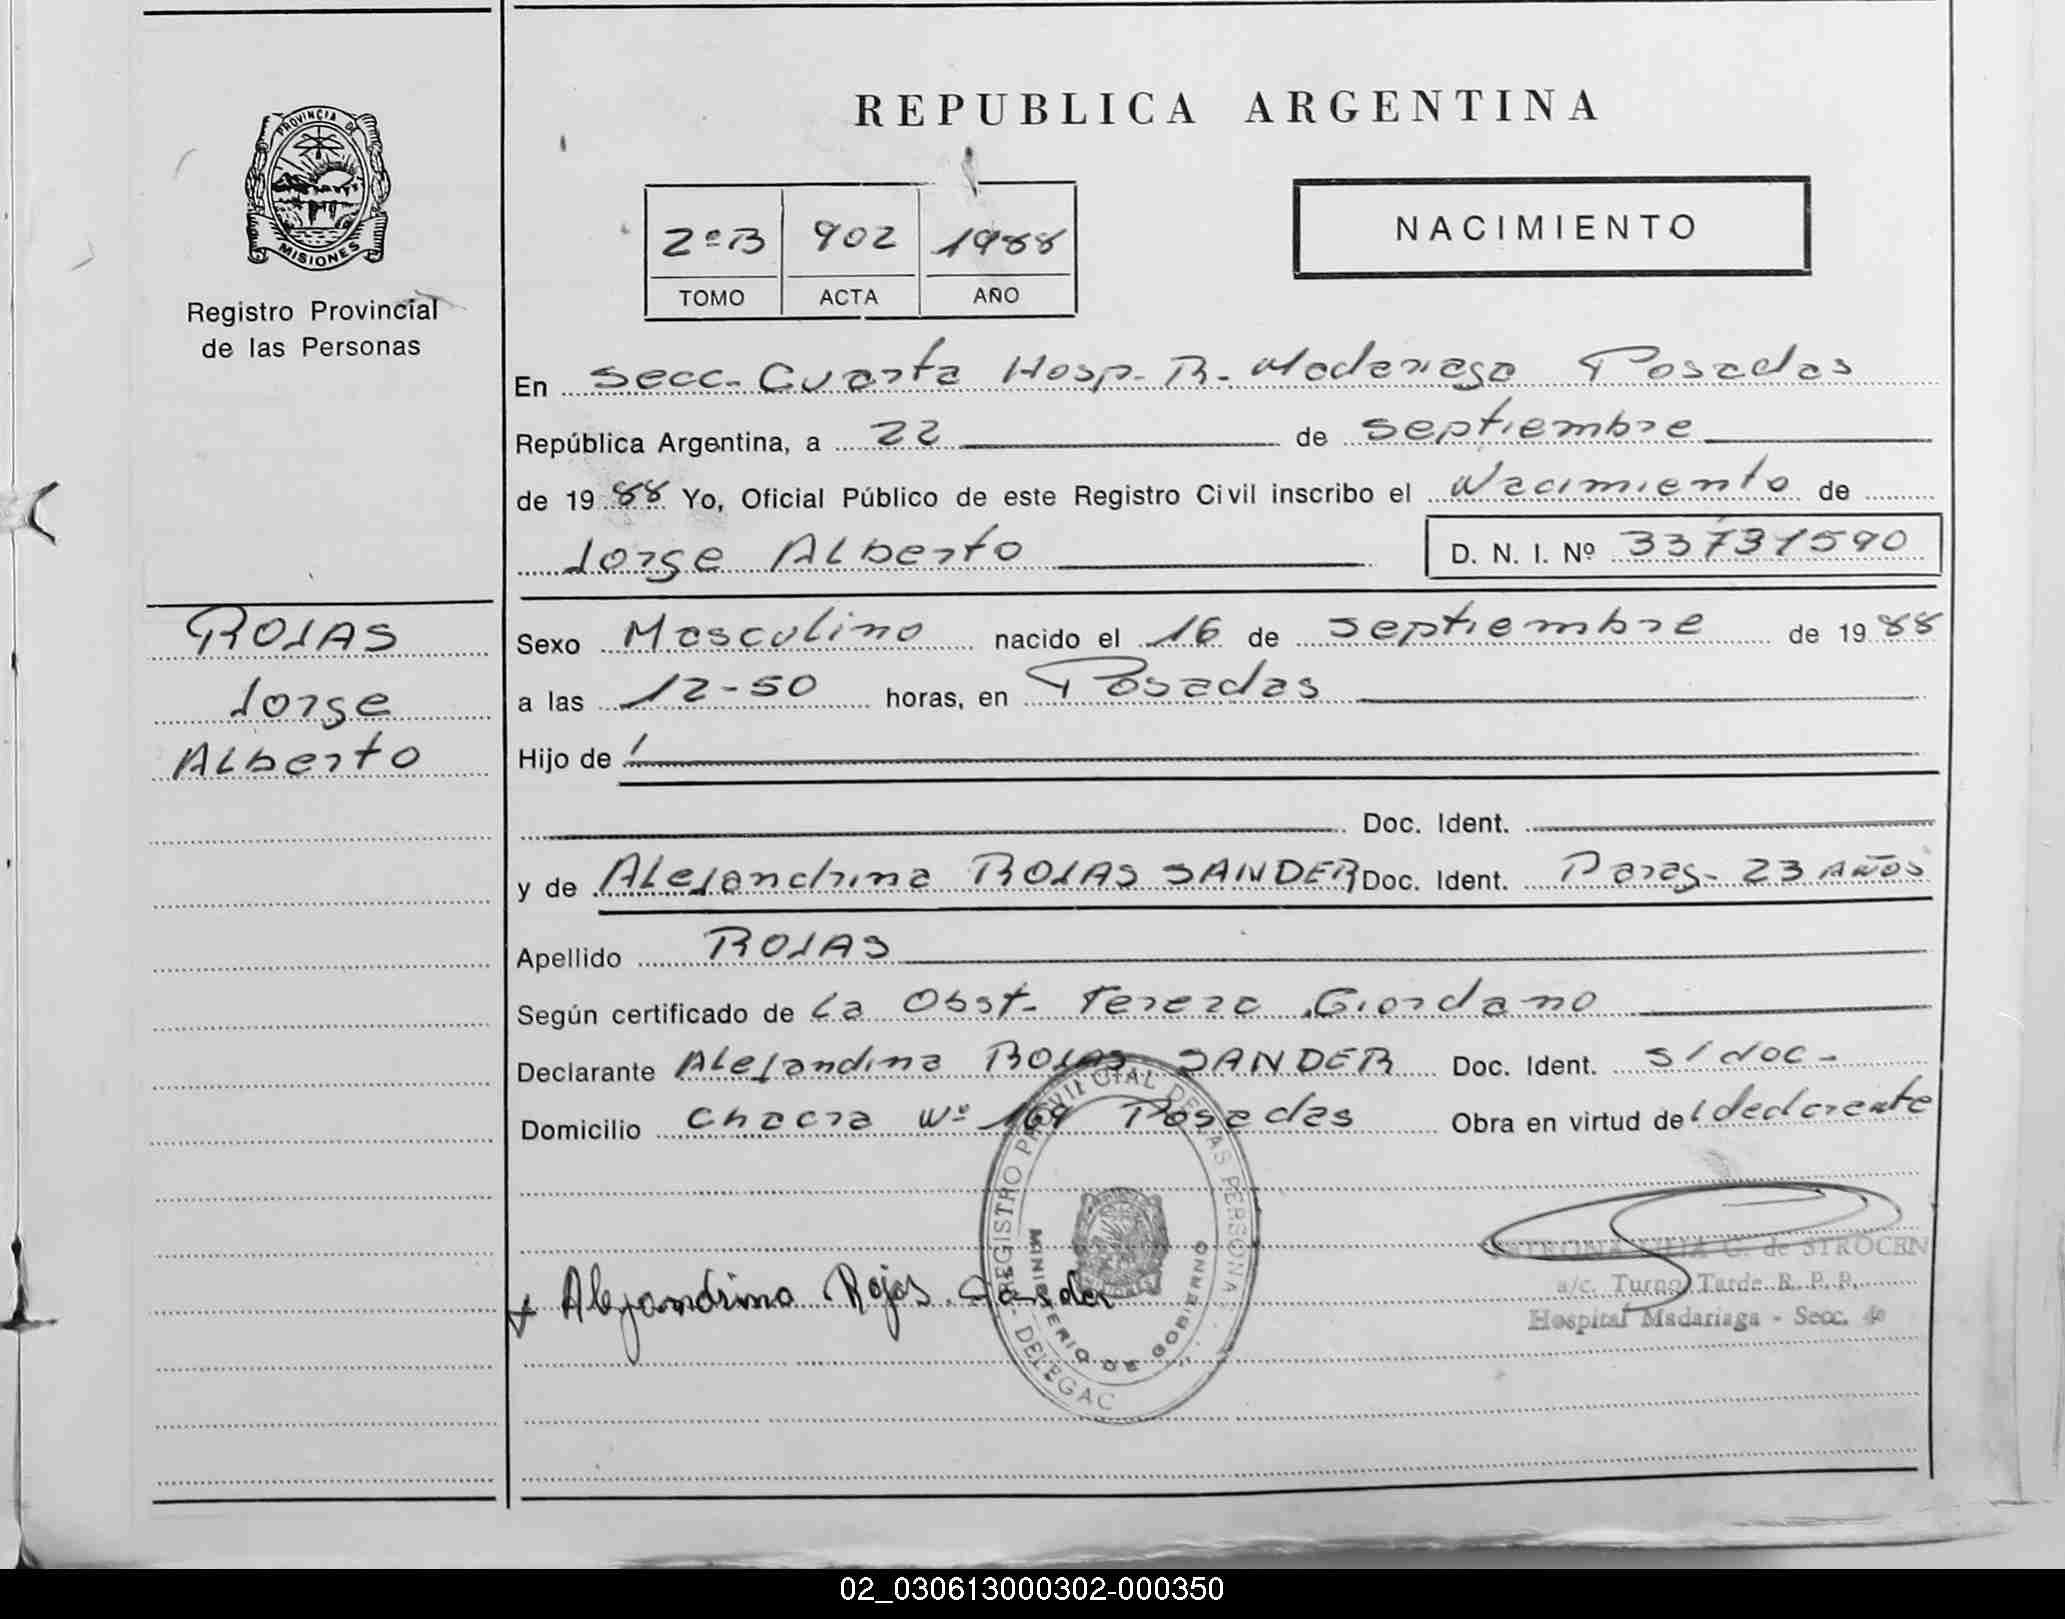 REPUBLICA ARGENTINA
PROVINCIA DE
MISIONES
Registro Provincial
de las Personas
2º B 902 1988
TOMO ACTA AÑO
NACIMIENTO
En Secc. Cuarta Hosp. R. Madariaga Posadas
República Argentina, a 22 de septiembre
de 1988 Yo, Oficial Público de este Registro Civil inscribo el Nacimiento de
Jorge Alberto D. N. I. Nº 33731590
ROJAS
Jorge
Alberto
Sexo Masculino nacido el 16 de septiembre de 1988
a las 12-50 horas, en Posadas
Hijo de
Doc. Ident.
y de Alejandrina ROJAS SANDER Doc. Ident. Parag- 23 AÑOS
Apellido ROJAS
Según certificado de La Obst. Tereza Giordano
Declarante Alejandina ROJAS SANDER Doc. Ident. s/doc-
Domicilio Chacra Nº 169 Posadas Obra en virtud de declarante
REGISTRO PROVINCIAL DE LAS PERSONAS
MINISTERIO DE GOBIERNO
DELEGAC
Alejandrina Rojas Sander
G. de
a/c. Turno Tarde R. P. P.
Hospital Madariaga - Secc. 4a
02_030613000302-000350